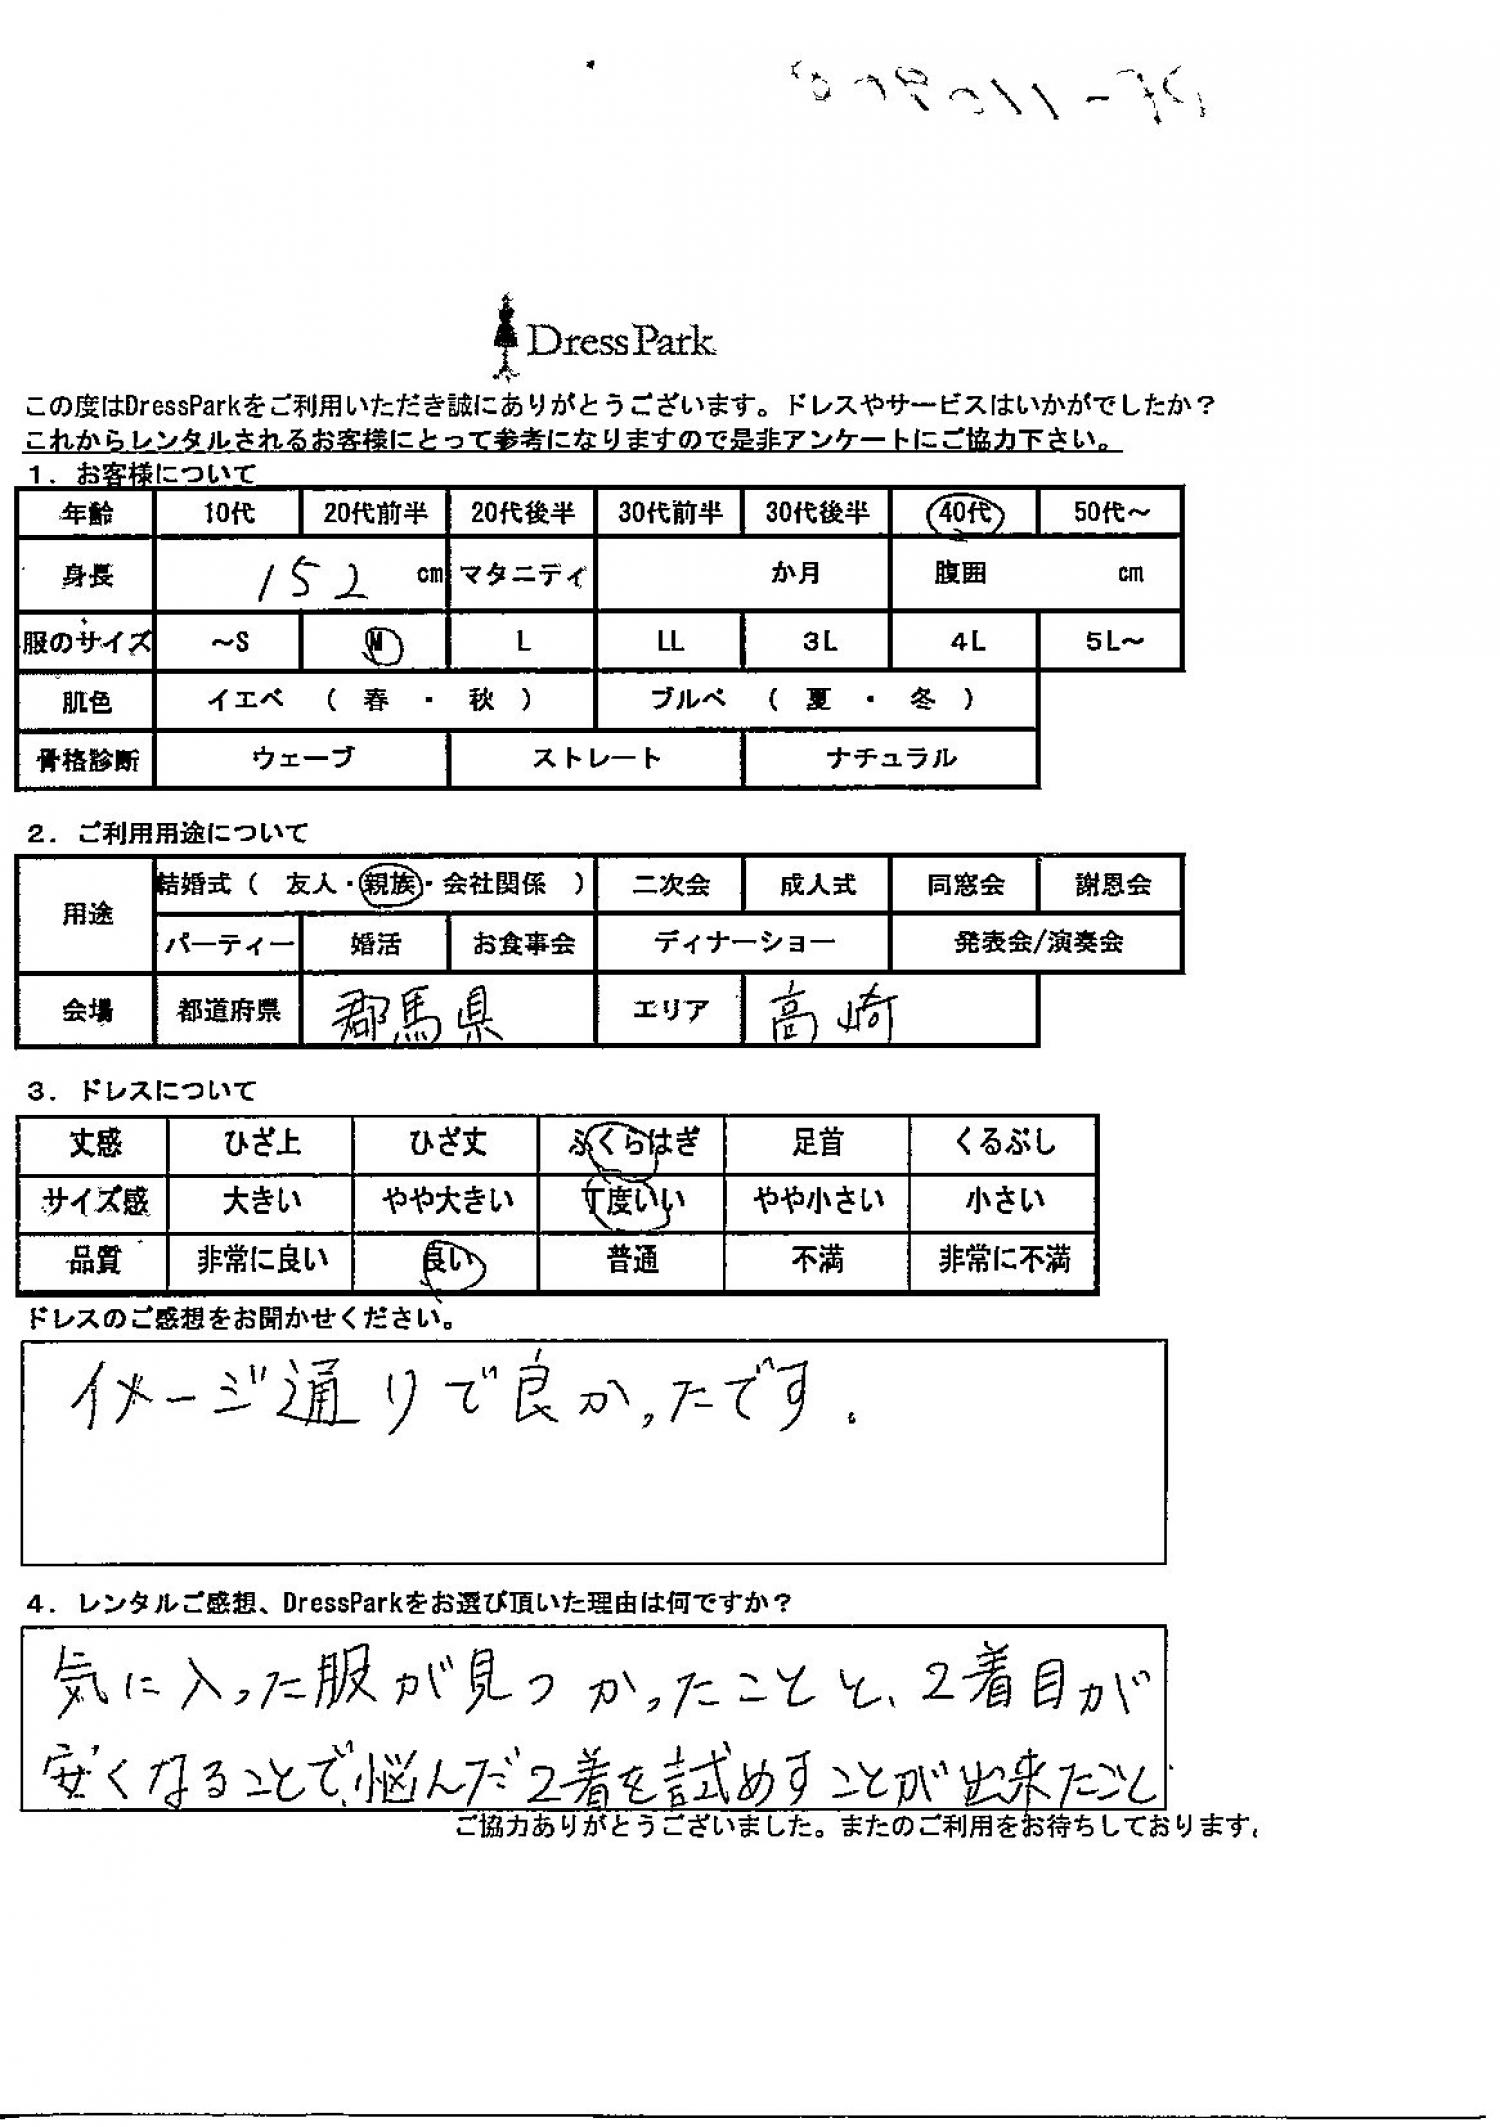 DressPark
この度はDressParkをご利用いただき誠にありがとうございます。ドレスやサービスはいかがでしたか？
これからレンタルされるお客様にとって参考になりますので是非アンケートにご協力下さい。
１．お客様について
年齢 10代 20代前半 20代後半 30代前半 30代後半 40代 50代～
身長 152 cm マタニティ か月 腹囲 cm
服のサイズ ～S M L LL 3L 4L 5L～
肌色 イエベ （ 春 ・ 秋 ） ブルベ （ 夏 ・ 冬 ）
骨格診断 ウェーブ ストレート ナチュラル
２．ご利用用途について
用途 結婚式（ 友人・親族・会社関係 ） 二次会 成人式 同窓会 謝恩会
パーティー 婚活 お食事会 ディナーショー 発表会/演奏会
会場 都道府県 郡馬県 エリア 高崎
３．ドレスについて
丈感 ひざ上 ひざ丈 ふくらはぎ 足首 くるぶし
サイズ感 大きい やや大きい 丁度いい やや小さい 小さい
品質 非常に良い 良い 普通 不満 非常に不満
ドレスのご感想をお聞かせください。
イメージ通りで良かったです。
４．レンタルご感想、DressParkをお選び頂いた理由は何ですか？
気に入った服が見つかったことと、2着目が
安くなることで、悩んだ2着を試めすことが出来たこと
ご協力ありがとうございました。またのご利用をお待ちしております。